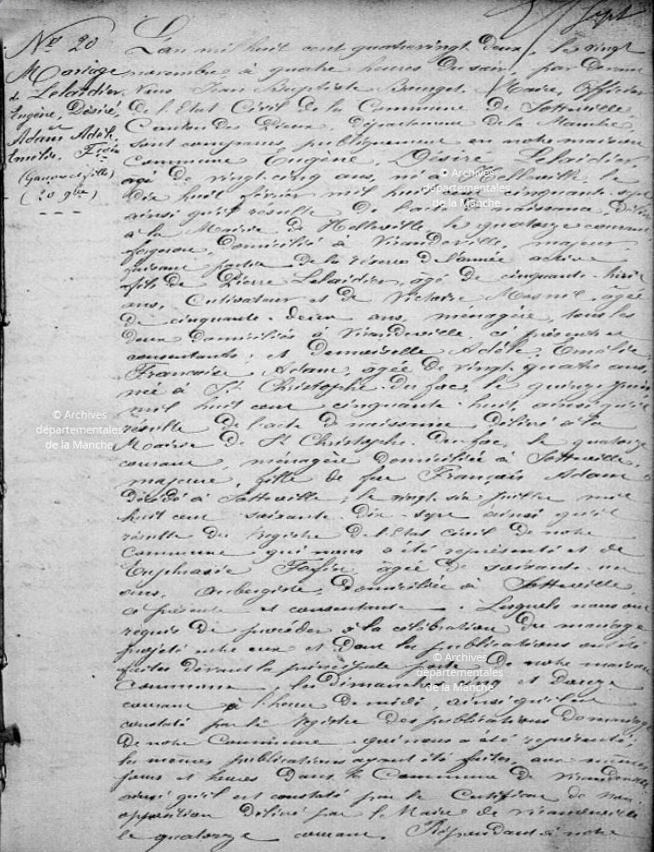 Sept
N° 20
Mariage
de Lelaidier
Eugène, Désiré,
et
Adam Adèle
Emilie, Fçoise
(Garçon et fille)
(20 9bre)
L'an mil huit cent quatrevingt deux, le vingt
novembre à quatre heures du soir, par devant
Nous Jean Baptiste Bourget, Maire, Officier
de l'Etat Civil de la Commune de Sotteville,
Canton des Pieux, département de la Manche,
sont comparus publiquement en notre maison
Commune Eugène, Désiré Lelaidier,
âgé de vingt-cinq ans, né à Helleville le
dix huit février mil huit cent cinquante sept
ainsi qu'il résulte de l'acte de naissance, délivré
à la Mairie de Helleville, le quatorze courant
forgeron, domicilié à Virandeville, majeur
faisant partie de la réserve de l'armée active
fils de Pierre Lelaidier, âgé de cinquante-huit
ans, Cultivateur et de Victoire Mesnil, âgée
de cinquante-deux ans, ménagère, tous les
deux domiciliés à Virandeville, ci présents et
consentants; et demoiselle Adèle, Emilie
Françoise Adam, âgée de vingt quatre ans,
née à St Christophe-du-foc, le quinze juin
mil huit cent cinquante-huit, ainsi qu'il
résulte de l'acte de naissance délivré à la
Mairie de St Christophe-du-foc, le quatorze
courant, ménagère domiciliée à Sotteville,
majeure, fille de feu François Adam
décédé à Sotteville, le vingt six juillet mil
huit cent soixante-dix-sept ainsi qu'il
résulte du registre de l'Etat civil de notre
Commune qui nous a été représenté et de
Euphasie ans, aubergiste, domiciliée à Sotteville
à présente et consentante. Lesquels nous ont
requis de procéder à la célébration du mariage
projeté entre eux et dont les publications ont été
faites devant la principale porte de notre maison
Commune, les dimanches cinq et douze
courant à l'heure de midi, ainsi qu'il est
constaté par le registre des publications de mariage
de notre Commune qui nous a été représenté;
les mêmes publications ayant été faites, aux mêmes
jours et heures dans la Commune de Virandeville
ainsi qu'il est constaté par le Certificat de non
opposition délivré par le Maire de Virandeville
le quatorze courant. Répondant à notre
© Archives
départementales
de la Manche
© Archives
départementales
de la Manche
© Archives
départementales
de la Manche